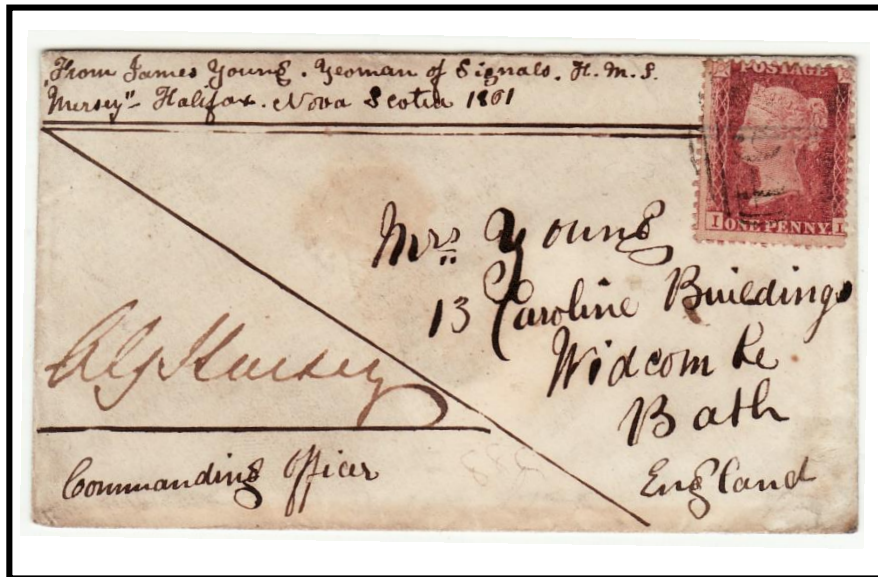 From James Young. Yeoman of Signals. H.M.S.
"Mersey" - Halifax. Nova Scotia 1861
POSTAGE
I ONE PENNY. I
Mrs Young
13 Caroline Buildings
Widcombe
Bath
England
Commanding Officer